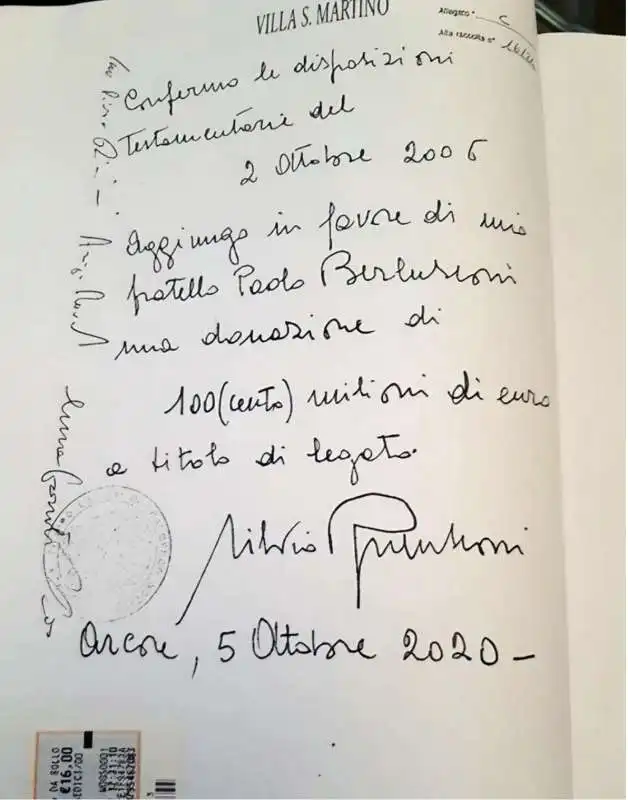 VILLA S. MARTINO
Allegato " C
Alla raccolta n°
Confermo le disposizioni
Testamentarie del
2 Ottobre 2006
Aggiungo in favore di mio
fratello Paolo Berlusconi
una donazione di
100 (cento) milioni di euro
a titolo di legato.
Silvio Berlusconi
Arcore, 5 Ottobre 2020 -
DA BOLLO
€16,00
SEDICI/00